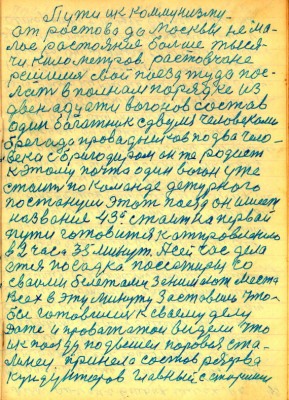 Пути ик коммунизму.
от ростова до Москвы немa-
лое растояния болше тыся-
чи километров. растовчане
решили свой поезд туда пос-
лат в полном порядке из
двенадцати вогонов состав
один багатник сдвумя человеками
бригада провадников по два чело-
века с бригодиром он же родист
к этому почто один вогон уже
стоит по команде дежурного
постанцуи этот поезд он имеет
названия 43º стоит на первай
пути готовится к отправлению
в 2 часа 35 минут. А сей час дела
ется посадка посожиры со
своими белетами зенимают места
всех в эту минуту заставило что-
бы готовилис к своему делу
дате и провагжатои видели что
их поезду подвешел поровоз ста-
линец. принела состов резрва
кундукторов главный с старшим